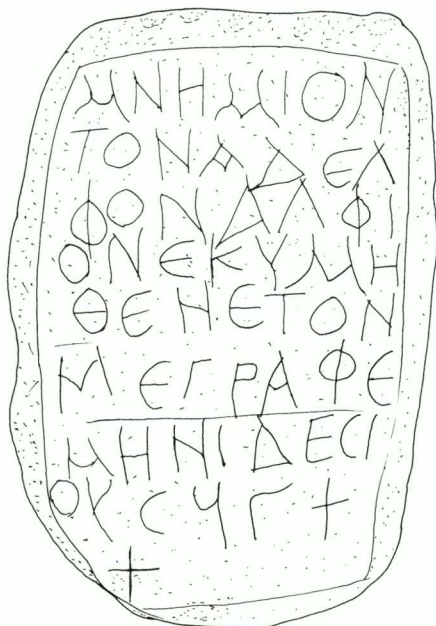 ΜΝΗΜΙΟΝ
ΤΟΝΑΔΕΛ
ΦΟΝΔΑΛΦΙ
ΟΝΕΚΥΜΗ
ΘΕΝΕΤΟΝ
ΜΕΓΡΑΦΕ
ΜΗΝΙΔΕСΙ
ΟΥСΥΓ+
+